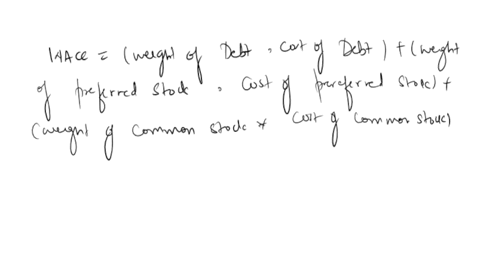 WACC = (weight of Debt , Cost of Debt ) + (weght
of preferred stock , Cost of pereferred stock) +
(weight of Common stock * Cost of Common stock)